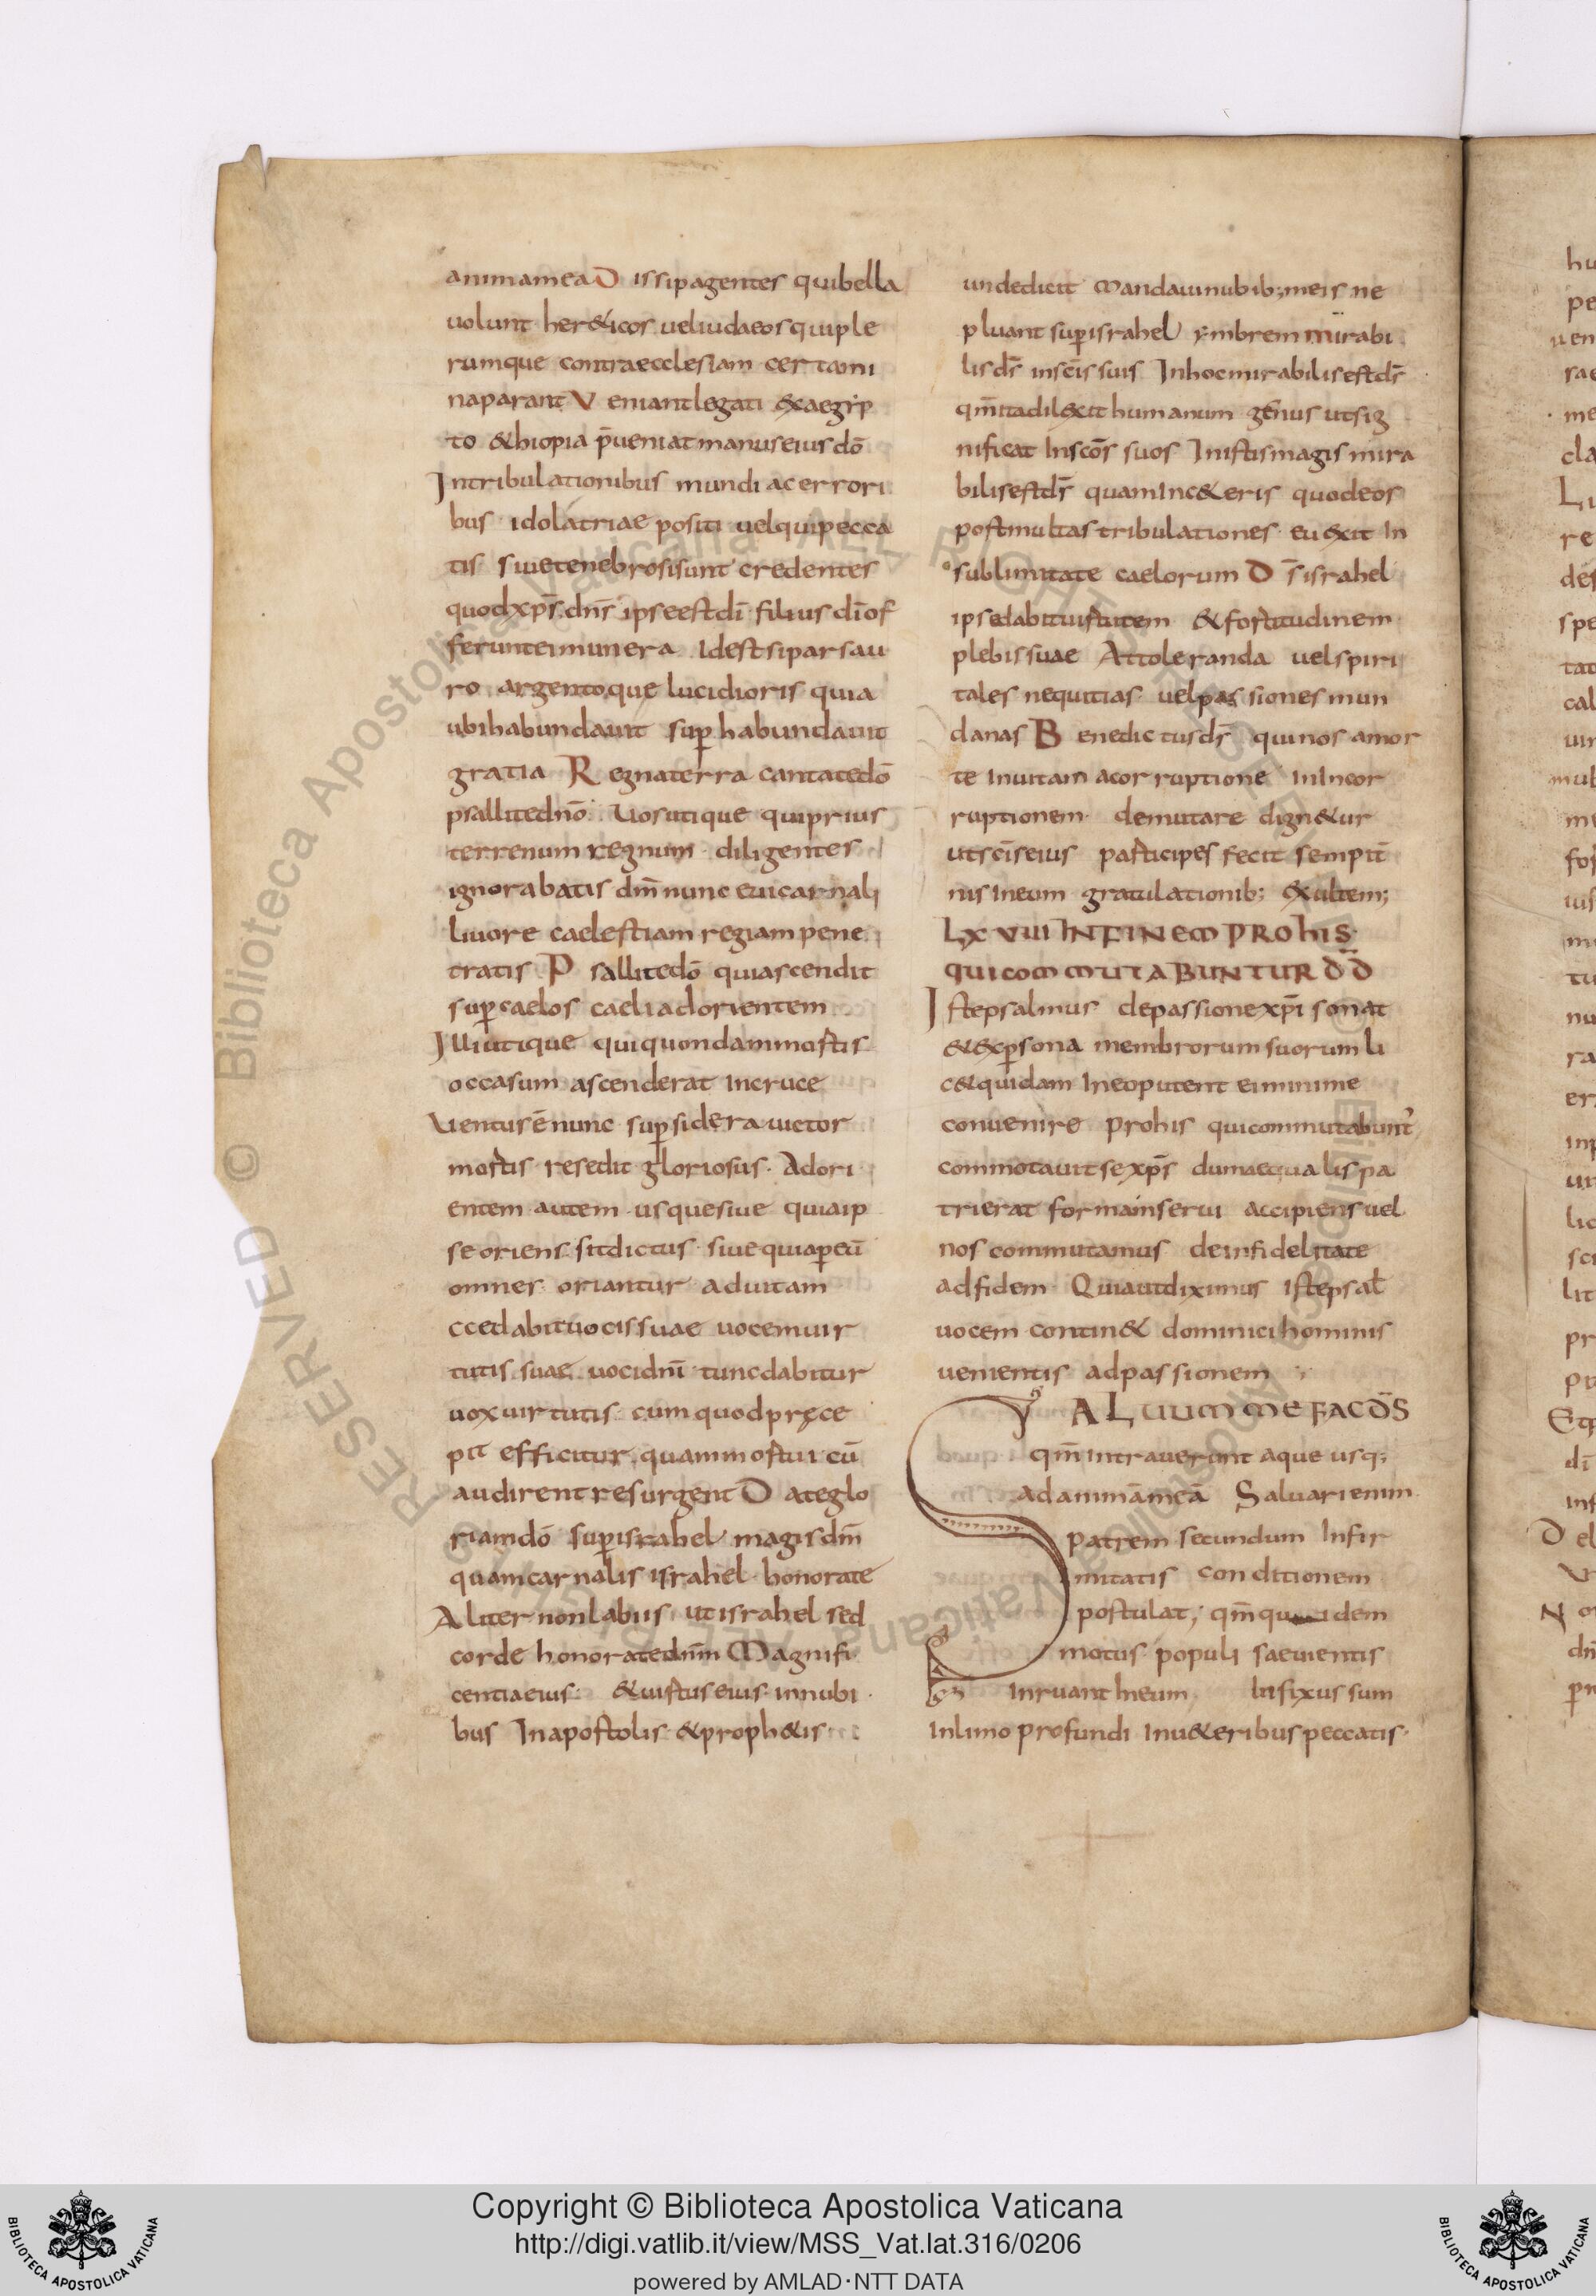 animamea Dissipagentes quibella
uolunt her&icos ueliudaeosquiple
rumque contraecclesiam certami
naparant Veniantlegati exaegip
to &hiopia p̄ueniatmanuseiusdō
Intribulationibus mundi acerrori
bus idolatriae positi uelquipecca
tis siuetenebrosisunt credentes
quodxp̄s dn̄s ipseestdī filius dīof
feruntei munera idestsiparsau
ro argentoque lucidioris quia
ubihabundauit sup habundauit
gratia Regnaterra cantatedō
psallitedn̄o Uosutique quiprius
terrenum regnum diligentes
ignorabatis dm̄ nunc euicarnali
liuore caelestiam regiam pene
tratis Psallitedō quiascendit
sup caelos caeliadorientem
Illiutique quiquondammortis
occasum ascenderat incruce
Uenturē nunc supsidera uictor
mortis resedit gloriosus Adori
entem autem usquesiue quiaip
se oriens sitdictus siuequiapeū
omnes oriantur aduitam
ccedabituocissuae uocemuir
tutis suae uocidn̄i tuncdabitur
uoxuirtutis cumquodpręce
pit efficitur quammortui cū
audirentresurgent Dateglo
riamdō supisrahel magisdm̄
quamcarnalis israhel honorate
Aliter nonlabiis utisrahel sed
corde honoratedn̄m Magnifi
centiaeius &uirtuseius innubi
bus Inapostolis &proph&is
undedicit Mandauinubib; meis ne
pluant supisrahel ymbrem mirabi
lisds̄ insc̄is suis Inhocmirabilisestds̄
qm̄itadilexit humanum genus utsig
nificat Inscōs suos Inistismagis mira
bilisestds̄ quaminc&eris quodeos
postmultas tribulationes euexit In
sublimitate caelorum Ds̄ israhel
ipsedabituirtutem &fortitudinem
plebissuae Attoleranda uelspiri
tales nequitias uelpassiones mun
danas Benedictusds̄ quinos amor
te Inuitam acorruptione inIncor
ruptionem demutare dign&ur
utsc̄iseius participes fecit sempit̄
nisIneum gratulationib; exultem;
LXVIII INFINEM PROhIS
QUICOMMUTABUNTUR DD̄
Istepsalmus depassionexpī sonat
&expsona membrorumsuorum li
c&quidam Ineoputent eiminime
conuenire Prohis quicommutabunt᾽
commotauitsexp̄s dumaequalispa
trierat formamserui accipiensuel
nos commutamus deinfidelitate
adfidem Quiautdiximus istepsal̄
uocem contin& dominicihominis
uenientis adpassionem
SALUUM ME FAC DS̄
qm̄ intrauerunt aque usq;
adanimāmeā Saluarienim
patrem secundum Infir
mitatis conditionem
postulat; qm̄ dem
motus populi saeuientis
inruant Ineum Infixussum
Inlimo profundi Inu&eribuspeccatis
Copyright © Biblioteca Apostolica Vaticana
http://digi.vatlib.it/view/MSS_Vat.lat.316/0206
powered by AMLAD·NTT DATA